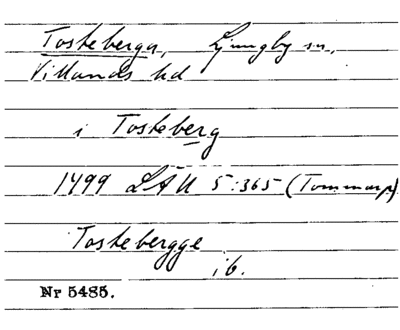 Tosteberga, Ljungby sn,
Villands hd
i Tosteberg
1499 LÄU 5:365 (Tommarp)
Tostebergge
ib.
Nr 5485.